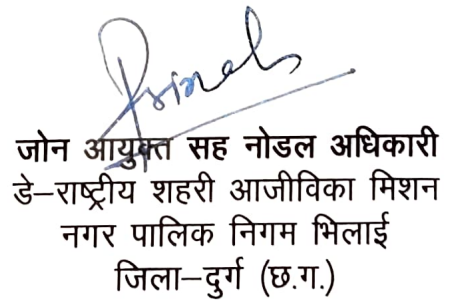 जोन आयुक्त सह नोडल अधिकारी
डे–राष्ट्रीय शहरी आजीविका मिशन
नगर पालिक निगम भिलाई
जिला–दुर्ग (छ.ग.)